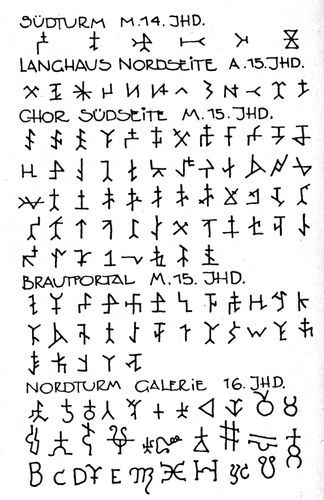 SÜDTURM M.14.JHD.
LANGHAUS NORDSEITE A.15.JHD.
CHOR SÜDSEITE M.15.JHD.
BRAUTPORTAL M.15.JHD.
NORDTURM GALERIE 16.JHD.
B C D E